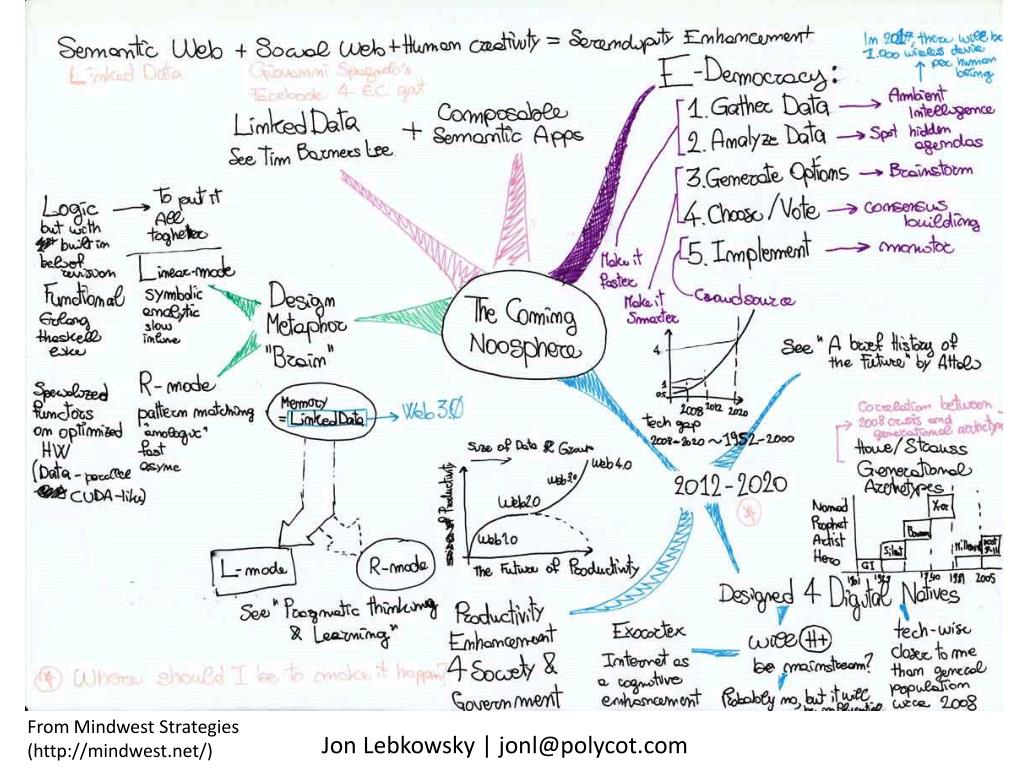 Semantic Web + Social Web + Human creativity = Serendipity Enhancement
Linked Data
Giovanni Spagnolo's
Facebook 4 EC govt
In 2017, there will be
1.000 wireless device
per human
being
Linked Data
See Tim Barners Lee
+
Composable
Semantic Apps
E-Democracy:
1. Gather Data → Ambient
Intelligence
2. Analyze Data → Spot hidden
agendas
3. Generate Options → Brainstorm
4. Choose/Vote → consensus
building
5. Implement → monitor
Make it
Faster
Make it
Smarter
Crowdsource
The Coming
Noosphere
Logic → To put it
All
togheter
but with
built in
belief
revision
Functional
Erlang
Haskell
like
Linear-mode
symbolic
analytic
slow
Design
Metaphor
"Brain"
Specialized
functors
on optimized
HW
(Data-parallel
CUDA-like)
R-mode
pattern matching
"analogue"
fast
async
Memory
= Linked Data → Web 3.0
L-mode
R-mode
See "Pragmatic thinking
& Learning"
Size of Data & Group
Productivity
Web 1.0
Web 2.0
Web 3.0
Web 4.0
The Future of Productivity
4
1
0.5
2008 2012 2020
tech gap
2008-2020 ~ 1952-2000
See "A brief History of
the Future" by Attali
2012-2020
Correlation between
2008 crisis and
generational archetypes
Howe/Strauss
Generational
Archetypes
Nomad
Prophet
Artist
Hero
GI
Silent
Boomer
X-er
1981 2005
Designed 4 Digital Natives
Productivity
Enhancement
4 Society &
Government
Exocortex
Internet as
a cognitive
enhancement
will H+
be mainstream?
Probably no, but it will
be influential
tech-wise
closer to me
than general
population
were 2008
Where should I be to make it happen?
From Mindwest Strategies
(http://mindwest.net/)
Jon Lebkowsky | jonl@polycot.com